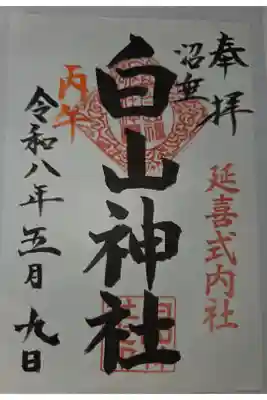 奉拝
延喜式内社
沼垂
白山神社
丙午
令和八年五月九日